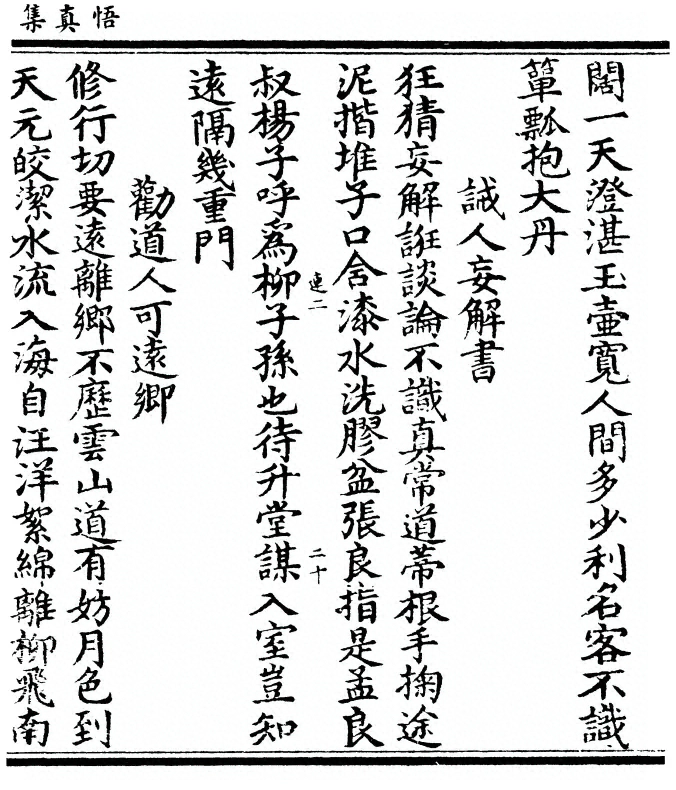 悟真集
闊一天澄湛玉壺寬人間多少利名客不識
簞瓢抱大丹
誡人妄解書
狂猜妄解誑談論不識真常道蒂根手掬途
泥揩堆子口含漆水洗膠盆張良指是孟良
連二
二十
叔楊子呼爲柳子孫也待升堂謀入室豈知
遠隔幾重門
勸道人可遠鄉
修行切要遠離鄉不歷雲山道有妨月色到
天元皎潔水流入海自汪洋絮綿離柳飛南